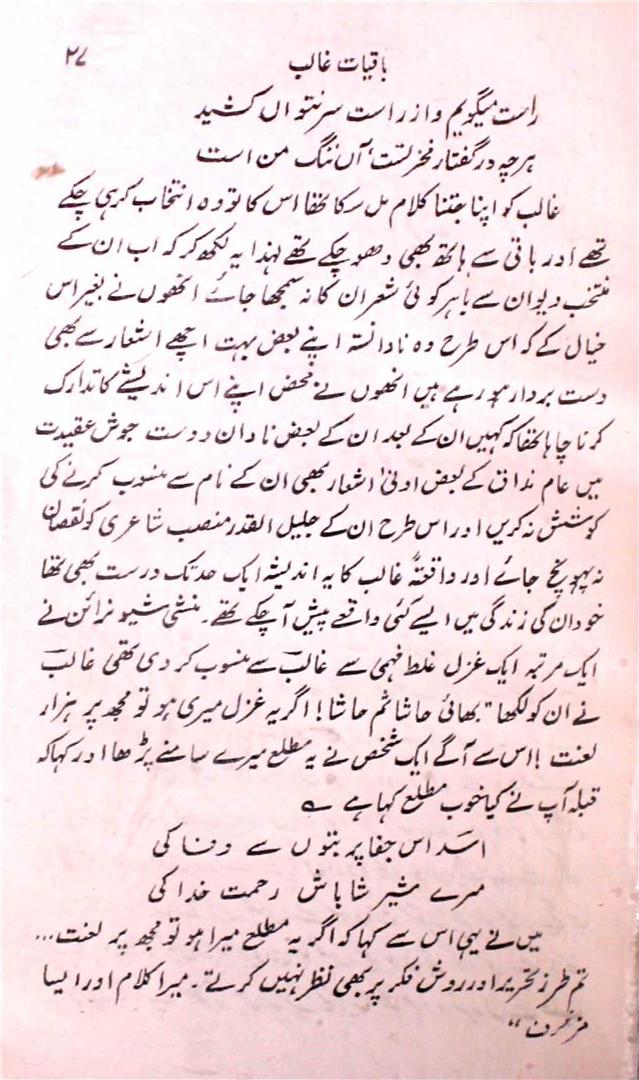 باقیات غالب ۲۷
راست میگویم و از راست سر نتواں کشید
ہر چہ در گفتار فخر تست، آں ننگ من است
غالب کو اپنا جتنا کلام مل سکا تھا اس کا تو وہ انتخاب کر ہی چکے
تھے اور باقی سے ہاتھ بھی دھو چکے تھے لہذا یہ لکھ کر کہ اب ان کے
منتخب دیوان سے باہر کوئی شعر ان کا نہ سمجھا جائے انھوں نے بغیر اس
خیال کے کہ اس طرح وہ نادانستہ اپنے بعض بہت اچھے اشعار سے بھی
دست بردار ہو رہے ہیں انھوں نے محض اپنے اس اندیشے کا تدارک
کرنا چاہا تھا کہ کہیں ان کے بعد ان کے بعض نادان دوست جوش عقیدت
میں عام مذاق کے بعض ادنیٰ اشعار بھی ان کے نام سے منسوب کرنے کی
کوشش نہ کریں اور اس طرح ان کے جلیل القدر منصب شاعری کو نقصان
نہ پہونچ جائے اور واقعتہً غالب کا یہ اندیشہ ایک حد تک درست بھی تھا
خود ان کی زندگی میں ایسے کئی واقعے پیش آ چکے تھے۔ منشی شیو نرائن نے
ایک مرتبہ ایک غزل غلط فہمی سے غالبؔ سے منسوب کر دی تھی غالبؔ
نے ان کو لکھا "بھائی حاشا ثم حاشا! اگر یہ غزل میری ہو تو مجھ پر ہزار
لعنت! اس سے آگے ایک شخص نے یہ مطلع میرے سامنے پڑھا اور کہا کہ
قبلہ آپ نے کیا خوب مطلع کہا ہے ؎
اسدؔ اس جفا پر بتوں سے وفا کی
مرے شیر شاباش رحمت خدا کی
میں نے یہی اس سے کہا کہ اگر یہ مطلع میرا ہو تو مجھ پر لعنت...
تم طرز تحریر اور روش فکر پر بھی نظر نہیں کرتے۔ میرا کلام اور ایسا
مزخرف"